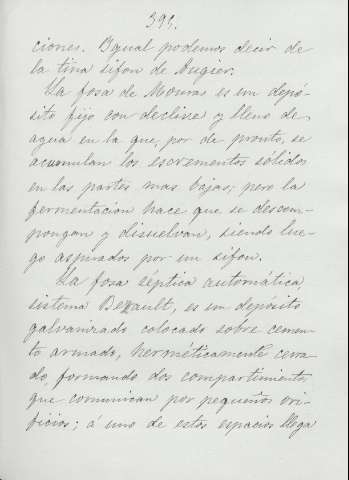 391.
ciones. Igual podemos decir de
la tina sifon de Augier.
La fosa de Mouras es un depó-
sito fijo con declive y lleno de
agua en la que, por de pronto, se
acumulan los escrementos sólidos
en las partes mas bajas; pero la
fermentacion hace que se descom-
pongan y disuelvan, siendo lue-
go aspirados por un sifon.
La fosa séptica automática,
sistema Bezault, es un depósito
galvanizado colocado sobre cemen-
to armado, herméticamente cerra-
do, formando dos compartimientos
que comunican por pequeños ori-
ficios; á uno de estos espacios llega